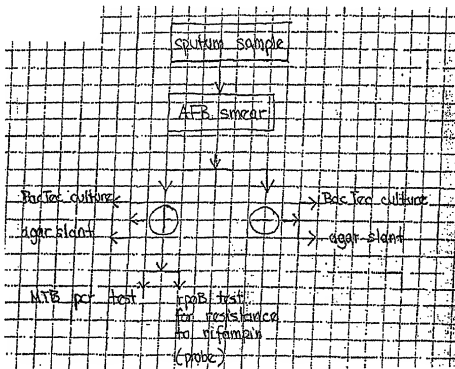 sputum sample
AFB smear
BacTec culture
agar slant
BacTec culture
agar slant
MTB pcr test
rpoB test
for resistance
to rifampin
(probe)